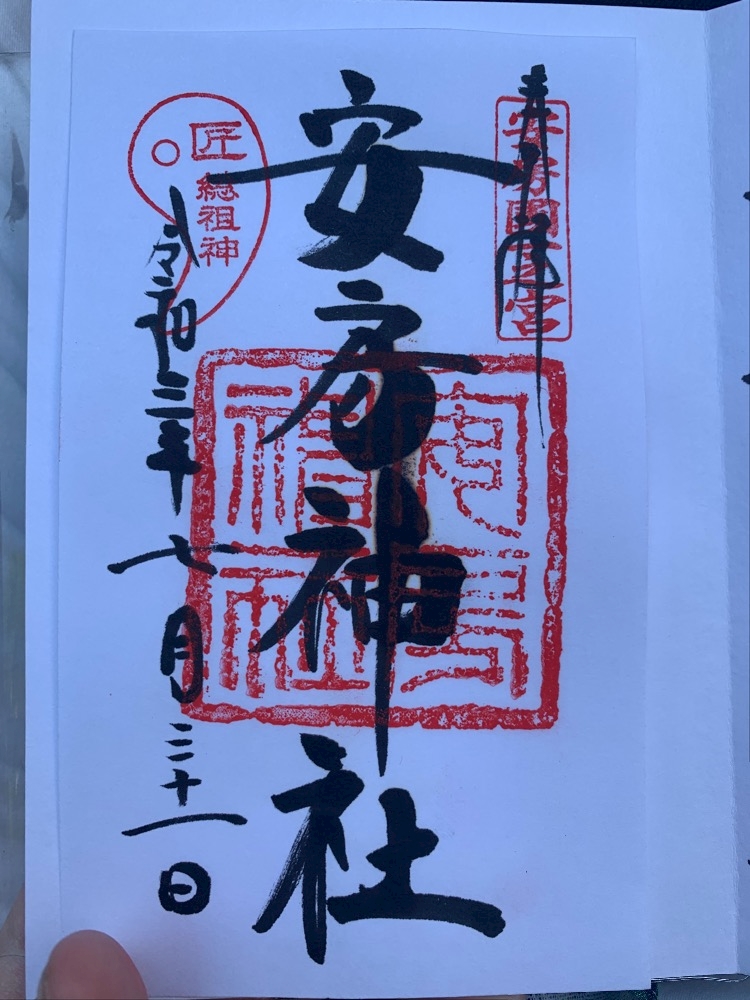 奉拝
安房國一之宮
安房神社
安房神社
匠
総祖神
令和三年七月三十一日